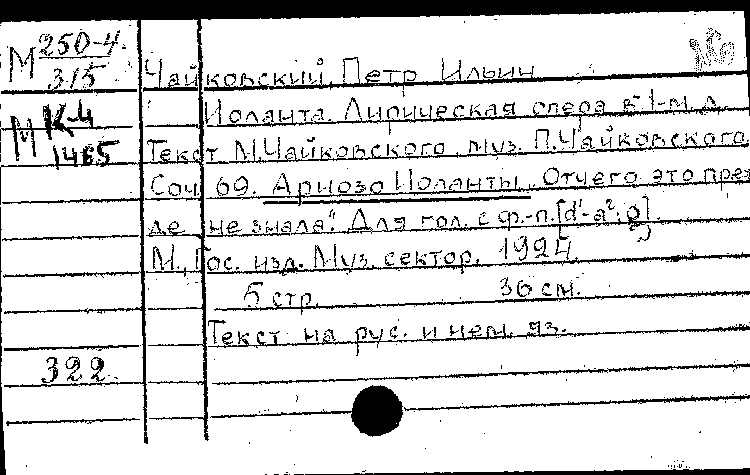 М 250-4
315
Чайковский, Петр Ильич
М К-4
1465
Иоланта. Лирическая опера в 1-м д.
Текст М.Чайковского, муз. П.Чайковского,
Соч. 69. Ариозо Иоланты „Отчего это преж
де не знала". Для гол. с ф.-п. [d¹-a²; g].
М., Гос. изд. Муз. сектор, 1924.
5 стр. 36 см.
Текст на рус. и нем. яз.
322